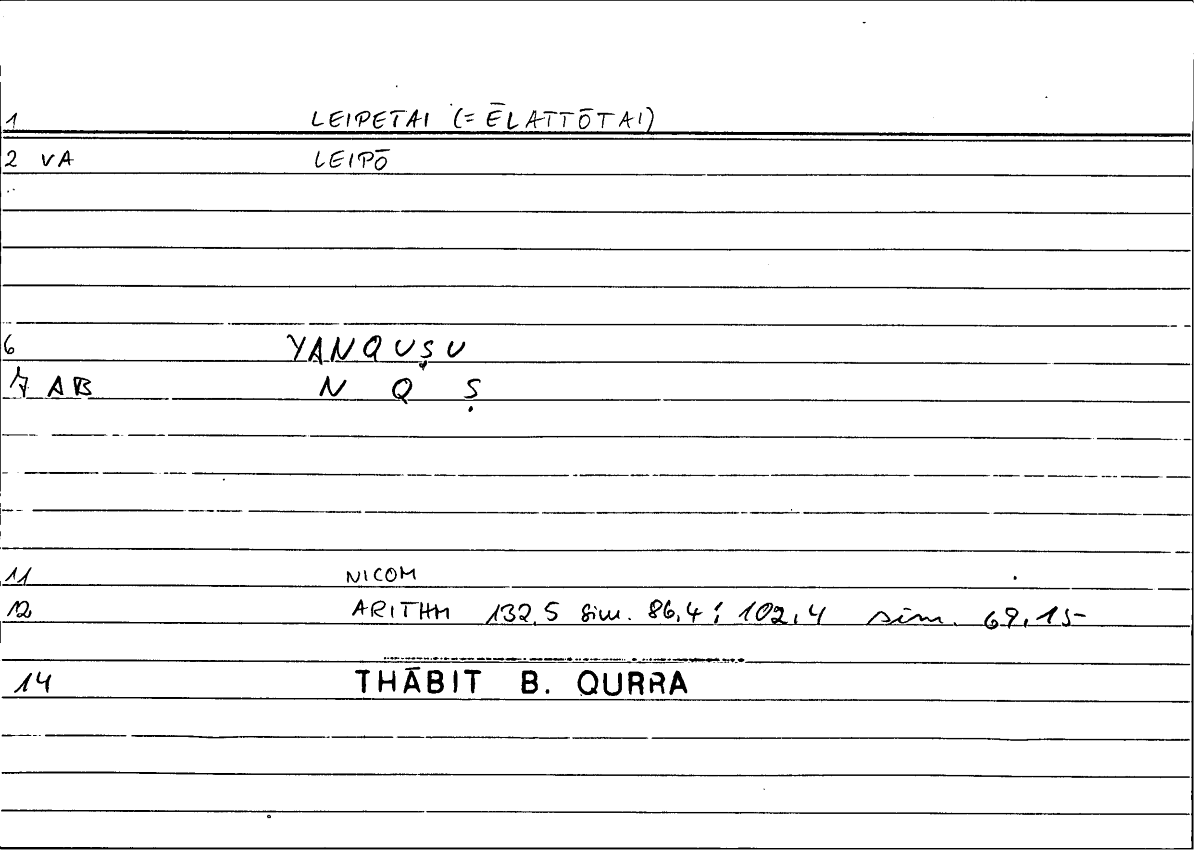 1 LEIPETAI (= ĒLATTŌTAI)
2 VA LEIPŌ
6 YANQUṢU
7 AB N Q Ṣ
11 NICOM
12 ARITHM 132,5 sim. 86,4; 102,4 sim. 69,15
14 THĀBIT B. QURRA